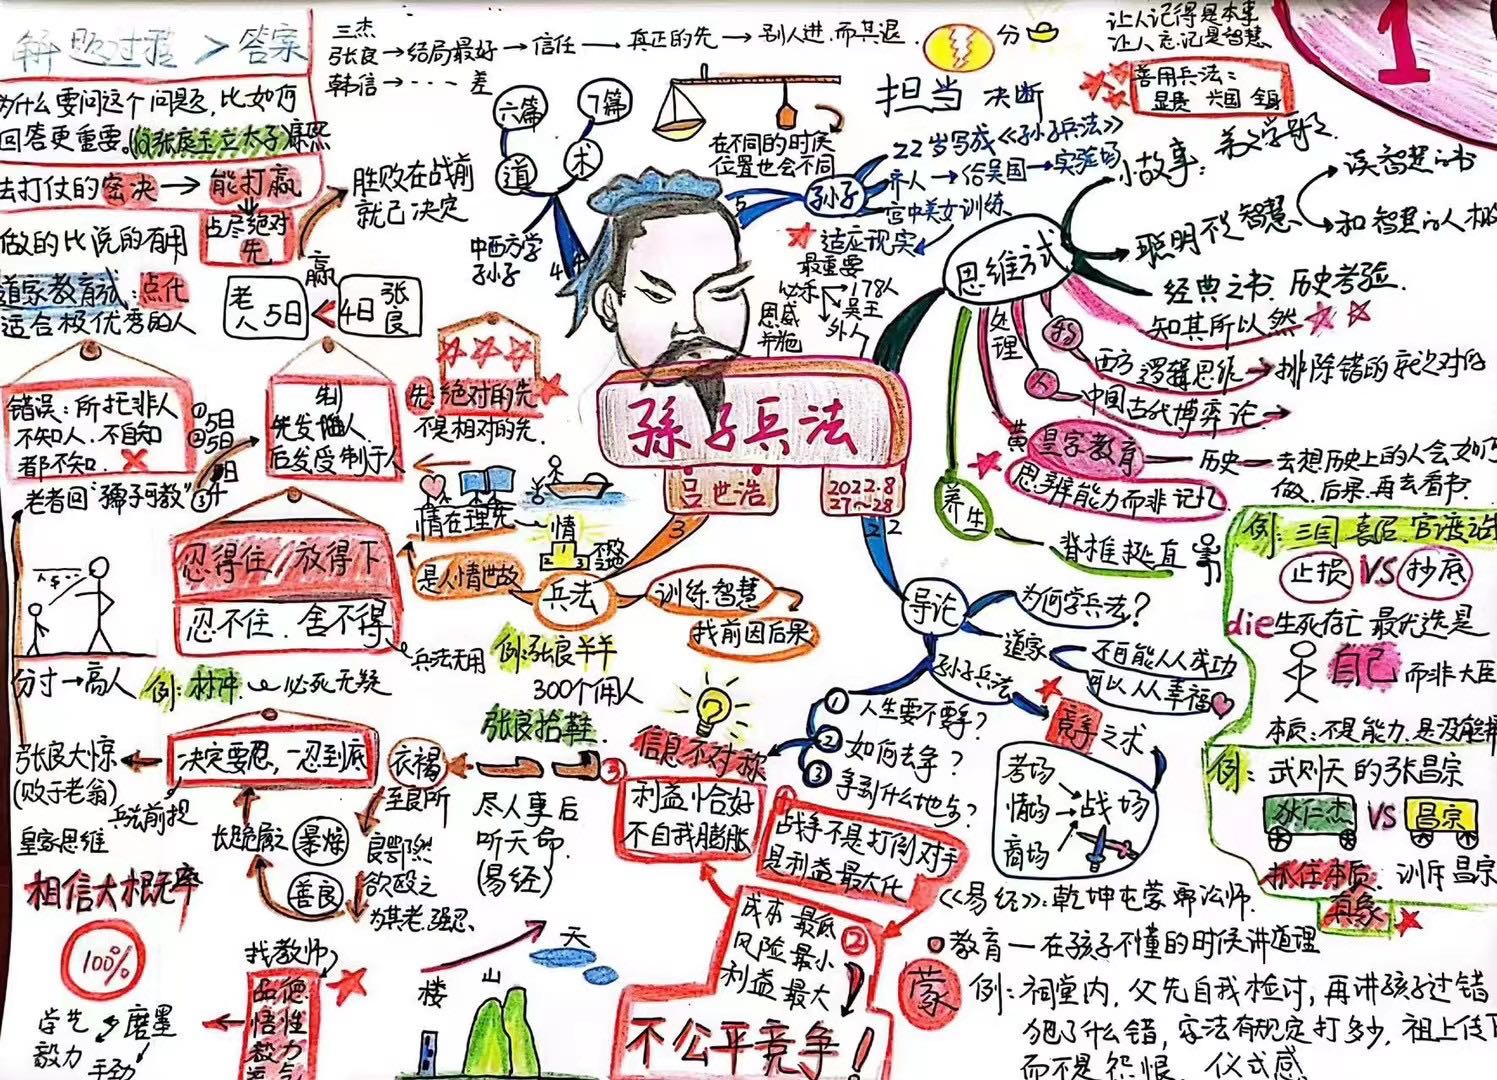 解题过程 > 答案
为什么要问这个问题,比如何
回答更重要。(以张庭玉立太子康熙
去打仗的密决 → 能打赢
占尽绝对
先
做的比说的有用
道家教育试:点化
适合极优秀的人
老人 5日 < 4日 张良
赢
胜败在战前
就已决定
三杰
张良→结局最好→信任→真正的先→别人进,而其退
韩信→···差
分
六篇
7篇
道
术
中西方学
孙子
在不同的时候
位置也会不同
担当 决断
让人记得是本事
让人忘记是智慧
善用兵法:
显贵 兴国 全身
1
孙子
22岁写成《孙子兵法》
齐人→给吴国→实验场
宫中美女训练
适应现实
最重要
必杀
178人
吴王
外人
恩威
并施
思维方式
小故事:
聪明不是智慧
读智慧的书
和智慧的人
经典之书.历史考验.
知其所以然
处理
物
西方 逻辑思维→排除错的就是对的
人
中国古代博弈论→
黄
皇家教育—历史—去想历史上的人会如何
做.后果.再去看书
思辨能力而非记忆
养生
脊椎挺直
孫子兵法
吕世浩
2022.8
27~28
错误:所托非人
不知人.不自知
都不知.
①5日
②5日
③
老者回“孺子可教”
制
先发制人
后发受制于人
先:绝对的先
不是相对的先.
情在理先
情
是人情世故
兵法
3
训练智慧
找前因后果
忍得住/放得下
忍不住.舍不得
兵法无用
例:张良半年
300个佣人
分寸→高人
例:林冲.必死无疑
张良大惊
(败于老翁)
决定要忍,一忍到底
兵法前提
皇家思维
张良拾鞋.
衣褐
至良所
良鄂然
欲殴之
为其老,强忍.
长跪履之
暴燥
善良
尽人事后
听天命.
(易经)
信息不对称
③
利益恰好
不自我膨胀
①
战争不是打倒对手
是利益最大化
②
成本最低
风险最小
利益最大
不公平竞争!
相信大概率
100%
磨墨
毅力
找教师
品德
悟性
毅力
楼
山
天
2
导论
为何学兵法?
道家
不可能人人成功
可以人人幸福
孙子兵法
竞争之术
①人生要不要争?
②如何去争?
③争到什么地步?
考场
情场→战场
商场
例:三国 袁绍 官渡之战
止损 VS 抄底
die生死存亡 最优选是
自己 而非大臣
本质:不是能力.是没能
例:武则天的张昌宗
狄仁杰 VS 昌宗
抓住本质.训斥昌宗
真象
《易经》:乾坤屯蒙
教育—在孩子不懂的时候讲道理
蒙
例:祠堂内,父先自我检讨,再讲孩子过错
犯了什么错,家法有规定打多少,祖上传下
而不是怨恨.仪式感